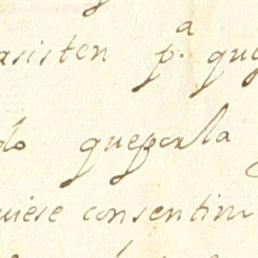 asisten p.ª que
do queporla
uiese consentim